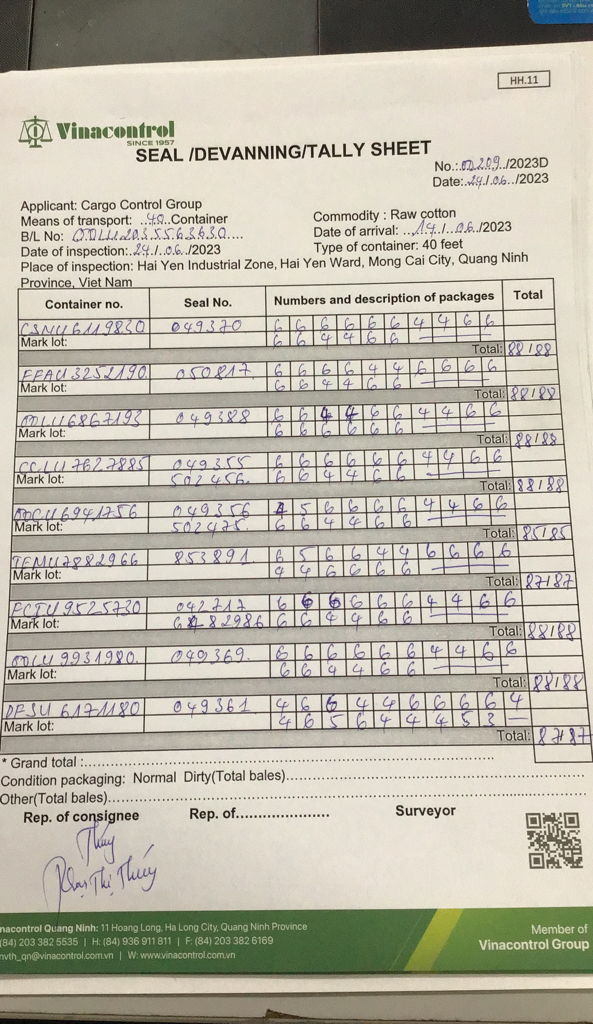 HH.11
Vinacontrol
SINCE 1957
SEAL /DEVANNING/TALLY SHEET
No.: 00209../2023D
Date: 24./.06../2023
Applicant: Cargo Control Group
Commodity : Raw cotton
Means of transport: ..40..Container
Date of arrival: ..14../..06../2023
B/L No: OOLU2035563630....
Type of container: 40 feet
Date of inspection: 24./.06../2023
Place of inspection: Hai Yen Industrial Zone, Hai Yen Ward, Mong Cai City, Quang Ninh
Province, Viet Nam
Container no. Seal No. Numbers and description of packages Total
CSNU6119830 049370 6 6 6 6 6 6 4 4 6 6
Mark lot: 6 6 4 4 6 6
Total: 88/88
FFAU3252190 050817 6 6 6 6 4 4 6 6 6 6
Mark lot: 6 6 4 4 6 6
Total: 88/88
OOLU6867193 049388 6 6 4 4 6 6 4 4 6 6
Mark lot: 6 6 6 6 6 6
Total: 88/88
CCLU7627885 049355 6 6 6 6 6 6 4 4 6 6
Mark lot: 502456. 6 6 4 4 6 6
Total: 88/88
OOCU6941756 049356 4 5 6 6 6 6 4 4 6 6
Mark lot: 502475. 6 6 4 4 6 6
Total: 85/85
TEMU7882966 853891 6 5 6 6 4 4 6 6 6 6
Mark lot: 4 4 6 6 6 6
Total: 87/87
FCIU9525730 042717 6 6 6 6 6 6 4 4 6 6
Mark lot: 6 6 4 4 6 6
Total: 88/88
OOLU9931980. 049369. 6 6 6 6 6 6 4 4 6 6
Mark lot: 6 6 4 4 6 6
Total: 88/88
DFSU6171180 049361 4 6 6 4 4 6 6 6 6 4
Mark lot: 4 6 5 6 4 4 4 5 3
Total: 87/87
* Grand total :
Condition packaging: Normal Dirty(Total bales)
Other(Total bales)
Rep. of consignee Rep. of.................... Surveyor
Thúy
Thị Thúy
nacontrol Quang Ninh: 11 Hoang Long, Ha Long City, Quang Ninh Province
(84) 203 382 5535 | H: (84) 936 911 811 | F: (84) 203 382 6169
nvth_qn@vinacontrol.com.vn | W: www.vinacontrol.com.vn
Member of
Vinacontrol Group